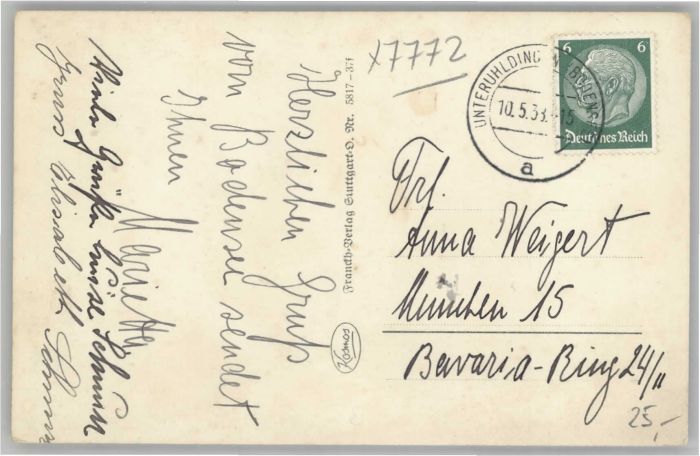 x7772
UNTERUHLDINGEN (BODENSEE)
10.5.38.-15
a
6 6
Deutsches Reich
Herzlichen Gruß
vom Bodensee sendet
Ihnen
Marietta
Viele Grüße
Schmidt
Gruss Elisabeth
Franckh-Verlag Stuttgart-O. Nr. 5817-371
Kosmos
Frl.
Anna Weigert
München 15
Bavaria-Ring 24/II
25,-